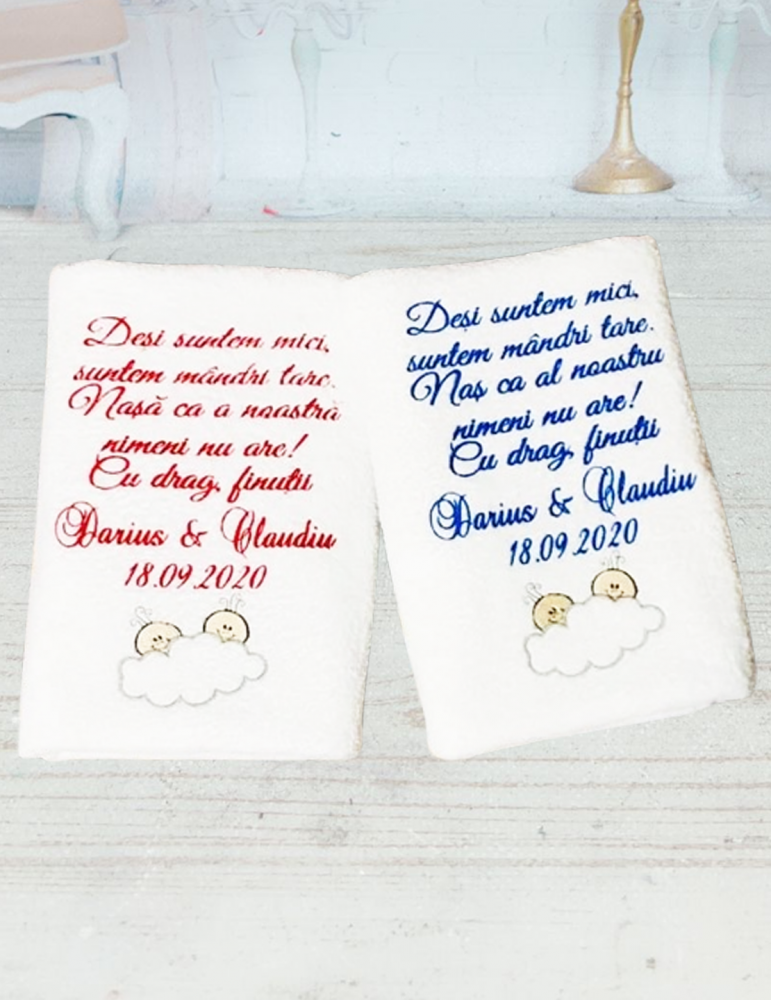 Deși suntem mici,
suntem mândri tare.
Nașă ca a noastră
nimeni nu are!
Cu drag, finuții
Darius & Claudiu
18.09.2020
Deși suntem mici,
suntem mândri tare.
Naș ca al noastru
nimeni nu are!
Cu drag, finuții
Darius & Claudiu
18.09.2020